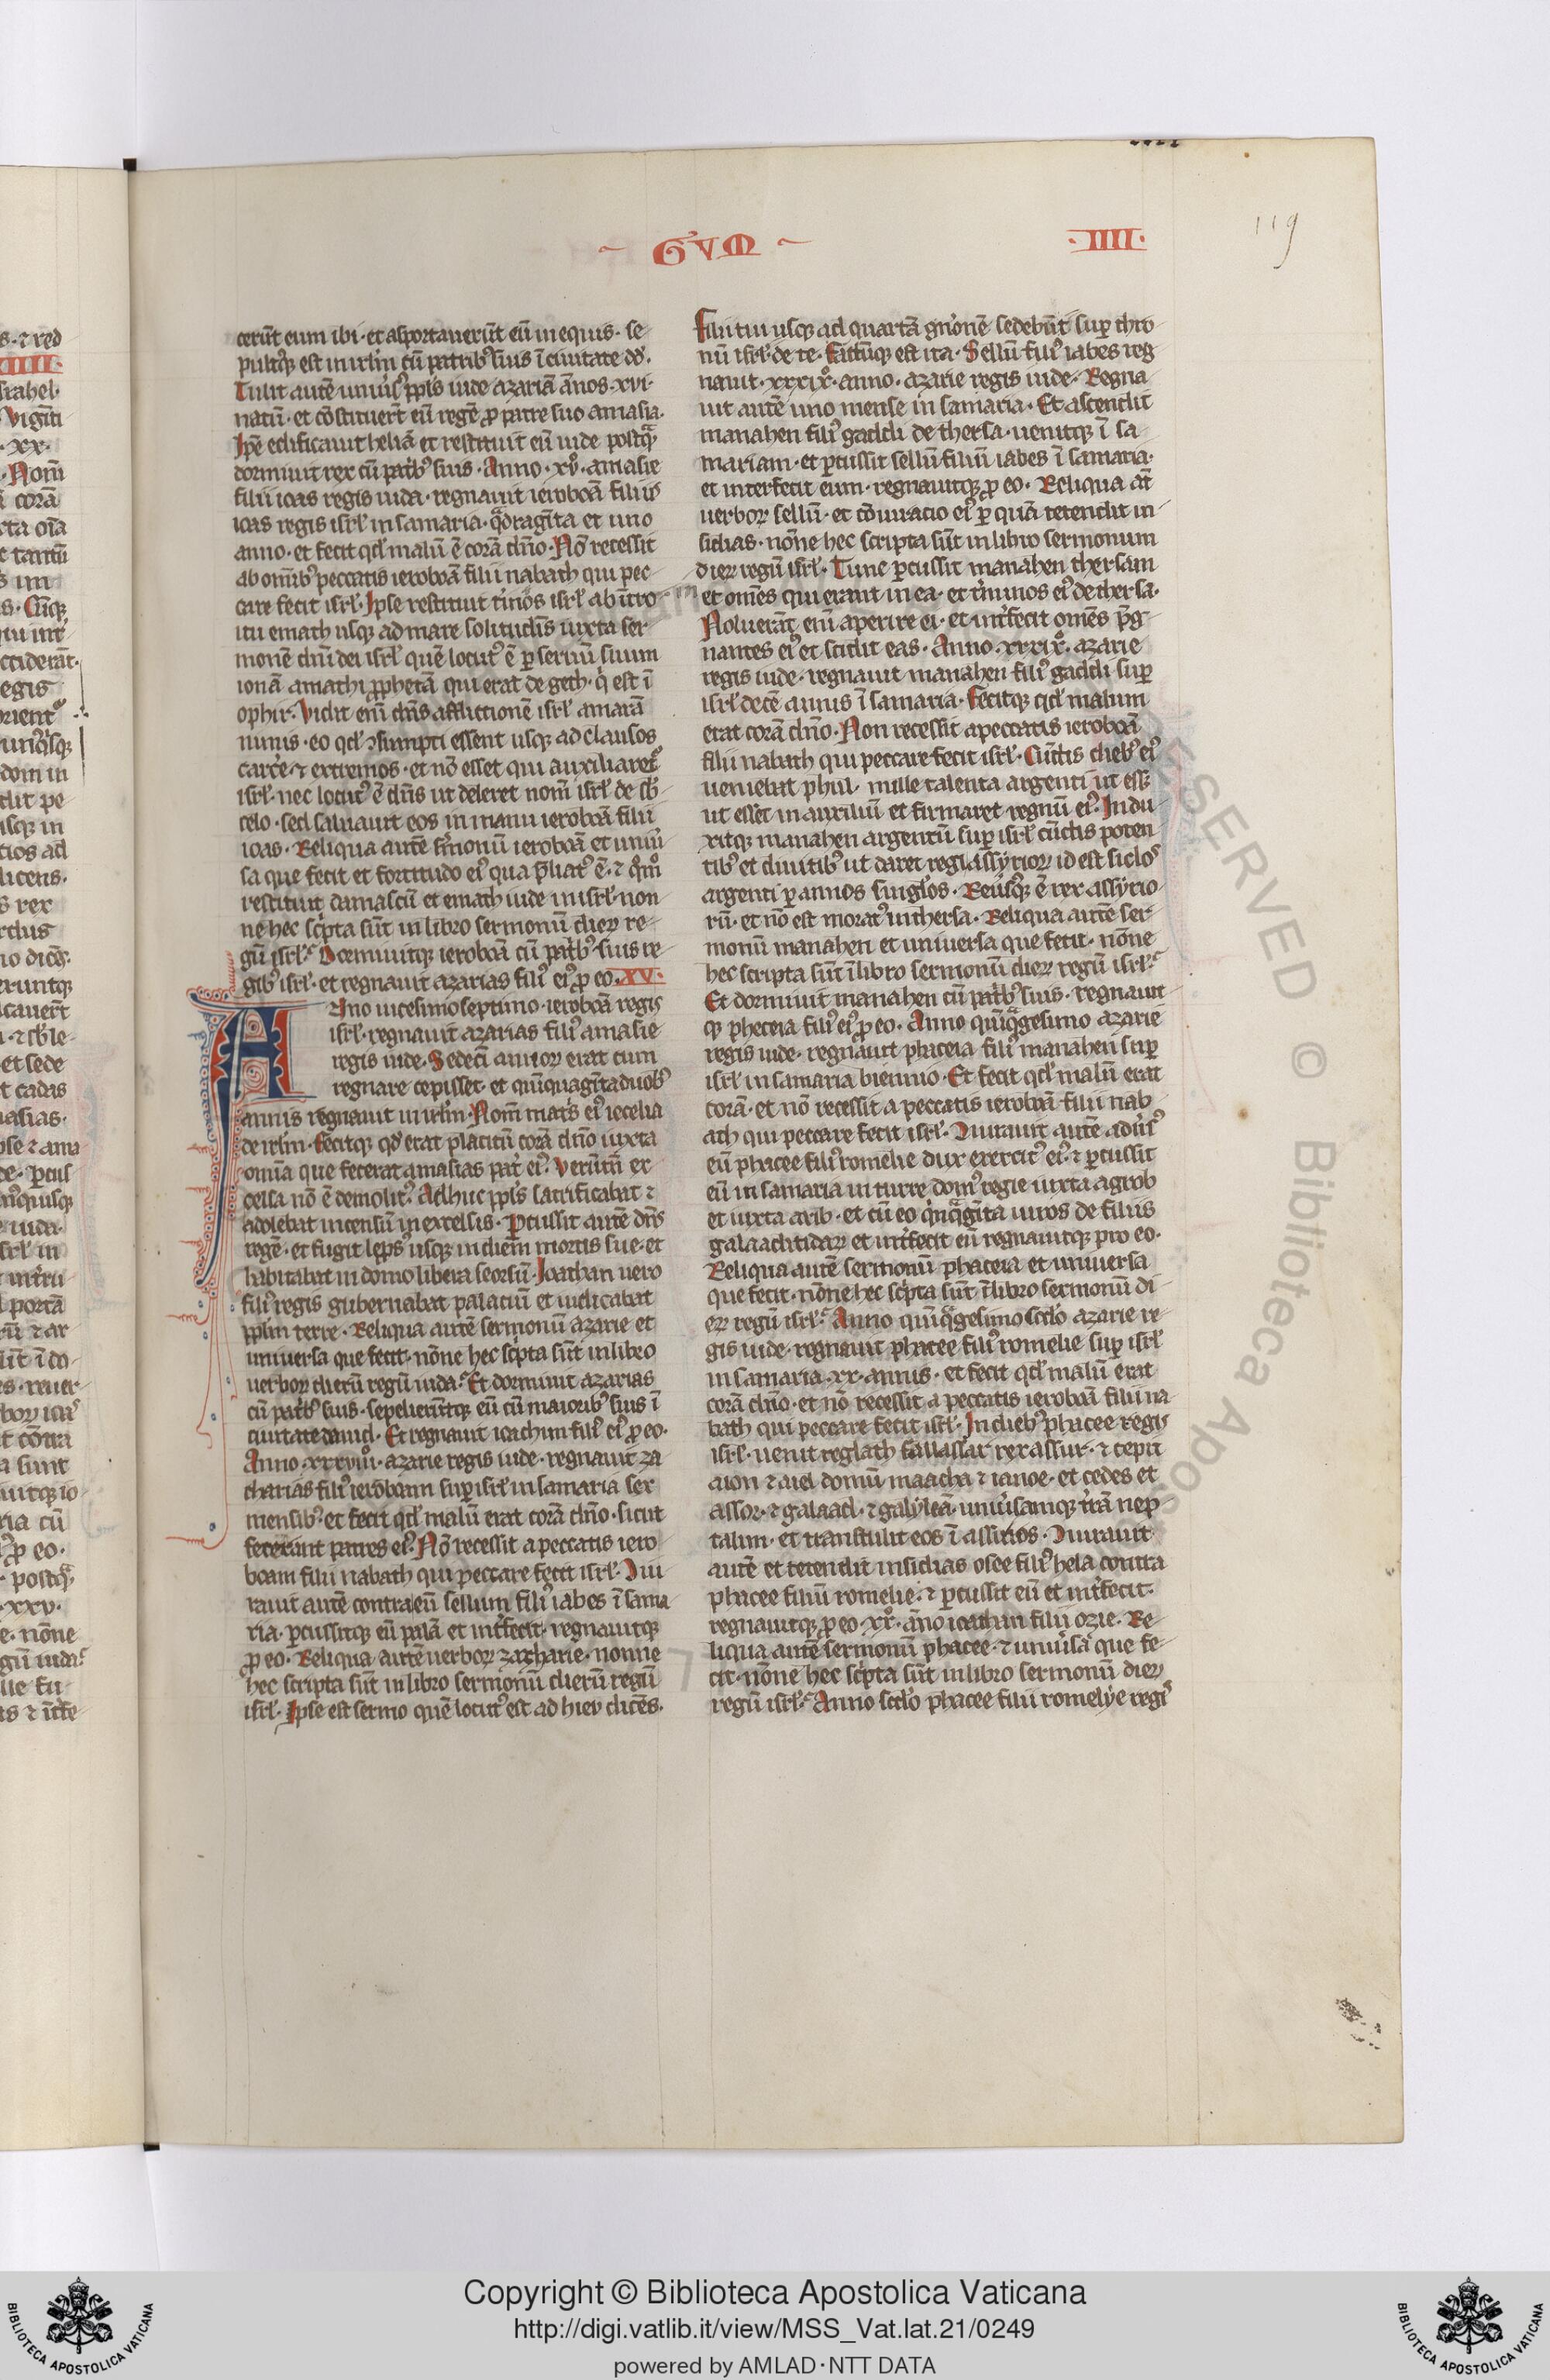 ~ GVM ~
·IIII·
119
cerūt eum ibi · et asportauerūt eū in equis · se
pultꝰq; est in irlm cū patribꝰ suis ī ciuitate dd̄ ·
Tulit autē uniūsꝰ ppl̄s iude azariā ānos · xvi ·
natū · et cōstituerūt eū regē ꝓ patre suo amasia ·
Ip̄e edificauit heliā et restituit eū iude postqᵃ̄
dormiuit rex cū patbꝰ suis · Anno · xvº · amasie
filii ioas regis iuda · regnauit ieroboā filius
ioas regis isrl̄ in samaria · qᵃdragīta et uno
anno · et fecit qd̄ malū ē corā dn̄o · Nō recessit
ab om̄ibꝰ peccatis ieroboā filii nabath qui pec
care fecit isrl̄ · Ipse restituit t̄minos isrl̄ ab ītro
itu emath usq; ad mare solitudīs iuxta ser
monē dn̄i dei isrl̄ quē locutꝰ ē ꝑ seruū suum
ionā amathi ꝓphetā qui erat de geth · q̄ est ī
ophir · Vidit enī dn̄s afflictionē isrl̄ amarā
nimis · eo qd̄ ꝯsumpti essent usq; ad clausos
carcē ⁊ extremos · et nō esset qui auxiliaretᵒ
isrl̄ · nec locutꝰ ē dn̄s ut deleret nom̄ isrl̄ de sb̄
celo · sed saluauit eos in manu ieroboā filii
ioas · Reliqua autē sermonū ieroboā et uniū
sa que fecit et fortitudo eiꝰ qua p̄liatꝰ ē · ⁊ qᵒmº
restituit damascū et emath iude in isrl̄ · non
ne hec sc̄pta sūt in libro sermonū dieꝝ re
gū isrl̄ · Dormiuitq; ieroboā cū patbꝰ suis re
gibꝰ isrl̄ · et regnauit azarias filiꝰ eiꝰ ꝓ eo · XV ·
Anno uicesimo septimo · ieroboā regis
isrl̄ · regnauit azarias filiꝰ amasie
regis iude · Sedecī annoꝝ erat cum
regnare cepisset · et quīquagīta duobꝰ
annis regnauit in irlm̄ · Nom̄ matīs eiꝰ iecelia
de irlm̄ · fecitq; qd̄ erat placitū corā dn̄o iuxta
omīa que fecerat amasias pat̄ eiꝰ · Verūtn̄ ex
celsa nō ē demolitꝰ · Adhuc ppl̄s sacrificabat ⁊
adolebat incensū in excelsis · Percussit autē dn̄s
regē · et fugit lep̄sꝰ usq; in diem mortis sue · et
habitabat in domo libera seorsū · Ioathan uero
filiꝰ regis gubernabat palaciū et iudicabat
pplm̄ terre · Reliqua autē sermonū azarie et
uniuersa que fecit · nōne hec sc̄pta sūt in libro
uerboꝝ dierū regū iuda · Et dormiuit azarias
cū patbꝰ suis · sepelierūtq; eū cū maioribꝰ suis ī
ciuitate dauid · Et regnauit ioathun filiꝰ eiꝰ ꝓ eo ·
Anno · xxxviiiº · azarie regis iude · regnauit za
charias filiꝰ ieroboam super isrl̄ in samaria sex
mensibꝰ · et fecit qd̄ malū erat corā dn̄o · sicut
fecerunt patres eiꝰ · Nō recessit a peccatis iero
boam filii nabath qui peccare fecit isrl̄ · Iiu
rauit autē contra eū sellum filiꝰ iabes ī sama
ria · ꝑcussitq; eū palā et int̄fecit · regnauitq;
ꝓ eo · Reliqua autē uerboꝝ zacharie · nonne
hec scripta sūt in libro sermonū dierū regū
isrl̄ · Ipse est sermo quē locutꝰ est ad hieu dicēs ·
Filii tui usq; ad quartā gn̄onē sedebūt suꝑ thro
nū isrl̄ · de te · factūq; est ita · Sellū filiꝰ iabes reg
nauit · xxxixº · anno · azarie regis iude · Regna
uit autē uno mense in samaria · Et ascendit
manahen filiꝰ gaddi de thersa · uenitq; ī sa
mariam · et ꝑcussit sellū filiū iabes ī samaria ·
et interfecit eum · regnauitq; ꝓ eo · Reliqua āt
uerboꝝ sellū · et cōiuratio eiꝰ ꝑ quā tetendit in
sidias · nōne hec scripta sūt in libro sermonum
dieꝝ regū isrl̄ · Tunc ꝑcussit manahen thersam
et om̄es qui erant in ea · et t̄minos eiꝰ de thersa ·
Noluerāt enī aperire ei · et int̄fecit om̄es p̄g
nantes eiꝰ et scidit eas · Anno · xxxixº · azarie
regis iude · regnauit manahen filiꝰ gaddi suꝑ
isrl̄ decē annis ī samaria · fecitq; qd̄ malum
erat corā dn̄o · Non recessit a peccatis ieroboā
filii nabath qui peccare fecit isrl̄ · Cūctis diebꝰ eiꝰ
ueniebat phul · mille talenta argenti ut ess
ut esset in auxiliū et firmaret regnū eiꝰ · Indu
xitq; manahen argentū suꝑ isrl̄ cūctis poten
tibꝰ et diuitibꝰ ut daret regi assyrioꝝ id est siclos
argenti ꝑ annos singl̄os · Reūsꝰq; ē rex assyrio
rū · et nō est moratꝰ in thersa · Reliqua autē ser
monū manahen et uniuersa que fecit · nōne
hec scripta sūt ī libro sermonū dieꝝ regū isrl̄ ·
Et dormiuit manahen cū patbꝰ suis · regnauit
q; pheceia filiꝰ eiꝰ ꝓ eo · Anno quīqᵃgesimo azarie
regis iude · regnauit phaceia filiꝰ manahen suꝑ
isrl̄ in samaria biennio · Et fecit qd̄ malū erat
corā · et nō recessit a peccatis ieroboā filii nab
ath qui peccare fecit isrl̄ · Iurauit autē adūsꝰ
eū phacee filiꝰ romelie dux exercitꝰ eiꝰ · ⁊ ꝑcussit
eū in samaria in turre domꝰ regie iuxta agrob
et iuxta arib · et cū eo qīnqᵃgīta uiros de filiis
galaachtidaꝝ et int̄fecit eū regnauitq; pro eo ·
Reliqua autē sermonū phaceia et uniuersa
que fecit · nōne hec sc̄pta sūt ī libro sermonū di
eꝝ regū isrl̄ · Anno quīqᵃgesimo scd̄o azarie re
gis iude · regnauit phacee filiꝰ romelie suꝑ isrl̄
in samaria · xx · annis · et fecit qd̄ malū erat
corā dn̄o · et nō recessit a peccatis ieroboā filii na
bath qui peccare fecit isrl̄ · In diebꝰ phacee regis
isrl̄ · uenit teglath fallassar rex assur · ⁊ cepit
aion ⁊ aiel domū maacha ⁊ ianoe · et cedes et
assor · ⁊ galaad · ⁊ galyleā · uniūsamq; t̄rā nep
talim · et transtulit eos ī assirios · Iiurauit
autē et tetendit insidias osee filiꝰ hela contra
phacee filiū romelie · ⁊ ꝑcussit eū et int̄fecit ·
regnauitq; ꝓ eo · xxº · āno ioathan filii ozie · Re
liqua autē sermonū phacee · ⁊ uniūsa que fe
cit · nōne hec sc̄pta sūt in libro sermonū dieꝝ
regū isrl̄ · Anno scd̄o phacee filii romelye regꝭ
Copyright © Biblioteca Apostolica Vaticana
http://digi.vatlib.it/view/MSS_Vat.lat.21/0249
powered by AMLAD·NTT DATA